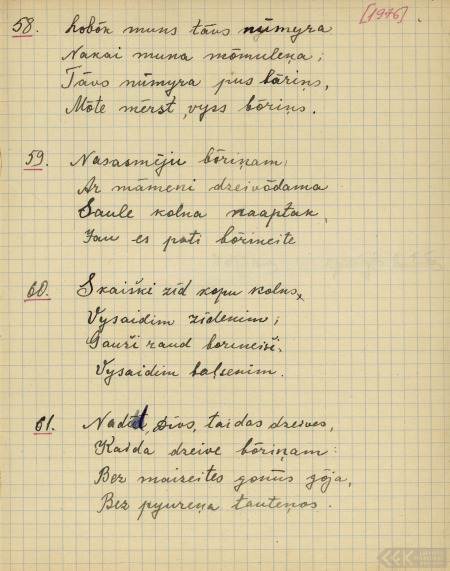 58. Lobōk muns tāvs nūmyra [1976]
Nakai muna mōmuleņa;
Tāvs nūmyra pus bāriņs,
Mōte mērst, vyss bōriņs.
59. Nasasmēju bōriņam,
Ar māmeni dzeivōdama
Saule kolna naaptak,
Jau es pati bōrineite
60. Skaiški zīd kopu kolns,
Vysaidim zīdenim;
Gauši raud borineiši.
Vysaidim baļsenim.
61. Nadūd, Dīvs, taidas dzeives,
Kaida dzeive bōriņam:
Bez maizeites gonūs gōja,
Bez pyureņa tauteņōs.